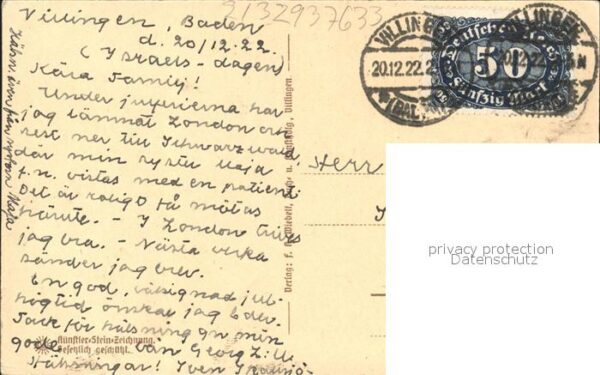 Villingen, Baden
d. 20/12.22.
(Israels-dagen)
Kära Familj!
Under juferierna har
jag lämnat London och
rest ner till Schwarzwald
där min syster Maja
f.n. vistas med en patient.
Det är roligt få mötas
härute. - I London trivs
jag bra. - Nästa vecka
sänder jag brev.
En god, välsignad jul-
högtid önskar jag Eder.
Tack för hälsning gn min
gode vän Georg
Hälsningar! Sven
Hälsn. även från systern Maja
3132937633
VILLINGEN
20.12.22
(BADEN)
Deutsches Reich
50
Fünfzig Mark
VILLINGEN
20.12.22
Herr
Künstler-Stein-Zeichnung.
Gesetzlich geschützt.
Verlag: F. K. Wiebelt, Buch- u. Kunsthdlg., Villingen
privacy protection
Datenschutz